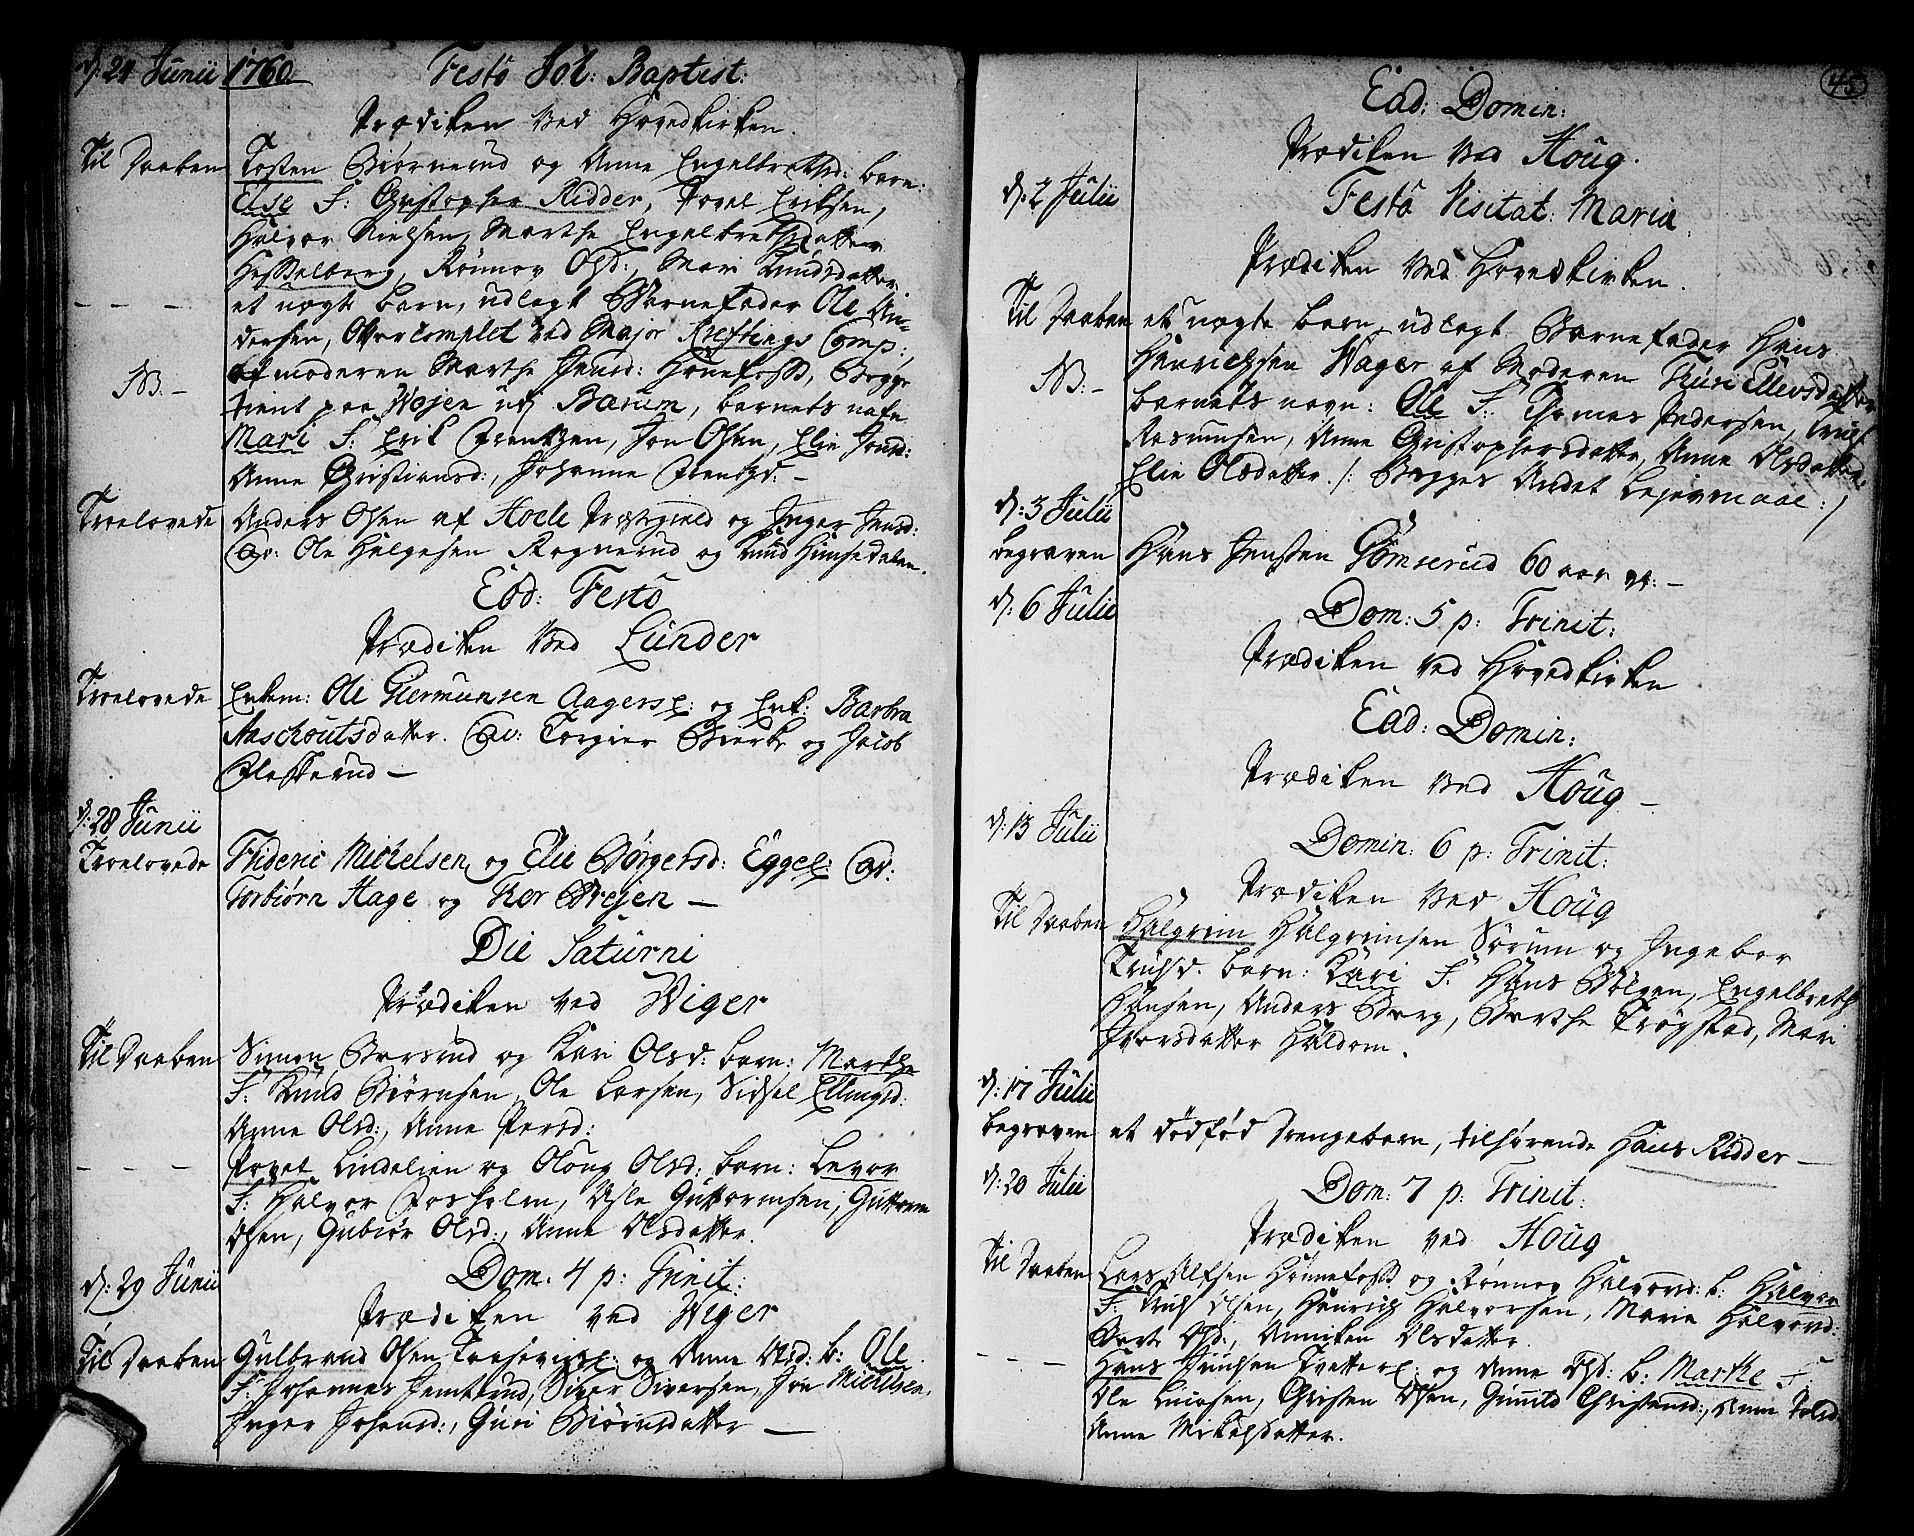 d: 24 Junii 1760 Festo Joh: Baptist:
Prædiken ved Hovedkirken.
Til Daaben Tosten Biørnerud og Anne Engelbrethsd: barn:
Else F: Christopher Ridder, Povel Eriksen,
Halvor Nielsen, Marthe Engelbrethsdatter
Hesselberg, Rønnov Olsd:, Mari Knudsdatter.
- - - et uægte barn, udlagt Barnefader Ole An-
dersen, Overcomplet ved Major Kreftings Comp:,
NB. - af moderen Marthe Jensd: Hønefoss, Begge
tient paa Vejen udj Bærum, barnets nafn
Mari F: Erik Frentzen, Jon Olsen, Elie Jonsd:
Anne Christiansd:, Johanne Frentzd: -
Troelovede Anders Olsen af Hoele Præstegield og Inger Jensd:
Cav: Ole Halgesen Rognerud og Knud Himsedalen.
Eod: Festo
Prædiken ved Lunder
Troelovede Enkem: Ole Giermunsen Aagerse: og Enk: Barbra
Aaschoutsdatter. Cav: Torgier Bierke og Jacob
Fleskerud -
d: 28 Junii
Troelovede Frideric Michelsen og Elie Børgersd: Eggee: Cav:
Torbiørn Hage og Thor Brejen -
Die Saturni
Prædiken ved Wiger
Til Daaben Simon Barsrud og Kari Olsd: barn: Marthe
F: Knud Biørnsen, Ole Larsen, Sidsel Ellingsd:
Anne Olsd:, Anne Persd:
- - - Povel Lindelien og Oloug Olsd: barn: Levor
F: Halvor Fosholm, Asle Guttormsen, Guttorm
Olsen, Gubiør Olsd:, Anne Olsdatter.
d: 29 Junii Dom: 4 p: Trinit:
Prædiken ved Wiger
Til Daaben Gulbrand Olsen og Anne Olsd: b: Ole
F: Johannes Jemterud, Siver Siversen, Jon Michelsen,
Inger Johansd:, Guri Biørnsdatter -
45
Ead: Domin:
Prædiken ved Houg.
d: 2 Julii Festo Visitat: Mariæ
Prædiken ved Hovedkirken.
Til Daaben et uægte barn, udlagt Barnefader Hans
Henrichsen Wager af Moderen Thuri Ellevsdatter
NB: - barnets navn: Ole F: Thomas Pedersen, Truls
Rasmusen, Anne Christophersdatter, Anne Olsdatter,
Elie Olsdatter. /: Begges Andet Lejermaal :/
d: 3 Julii
begraven Hans Jensen Gomserud 60 aar gl: -
d: 6 Julii Dom: 5 p: Trinit:
Prædiken ved Hovedkirken
Ead: Domin:
Prædiken ved Houg -
d: 13 Julii Domin: 6 p: Trinit:
Prædiken ved Houg
Til Daaben Halgrim Halgrimsen Sørum og Ingebor
Trulsd. barn: Kari F: Hans Bølgen, Engelbreth
Hansen, Anders Berg, Berthe Trøgstad, Mari
Iversdatter Haldom.
d: 17 Julii
begraven et dødfød Drengebarn, tilhørende Hans Ridder -
d: 20 Julii Dom: 7 p: Trinit:
Prædiken ved Houg
Til Daaben Lars Alfsen Hønnefoss og Rønnov Halvorsd: b: Halvor
F: Truls Olsen, Henrich Halvorsen, Maria Halvorsd:
Berte Olsd:, Anniken Olsdatter.
- - - Hans Juulsen Tvettere: og Anne Olsd: b: Marthe F:
Ole Hansen, Christen Olsen, Gunnild Christensd:, Anne
Anne Mikelsdatter.